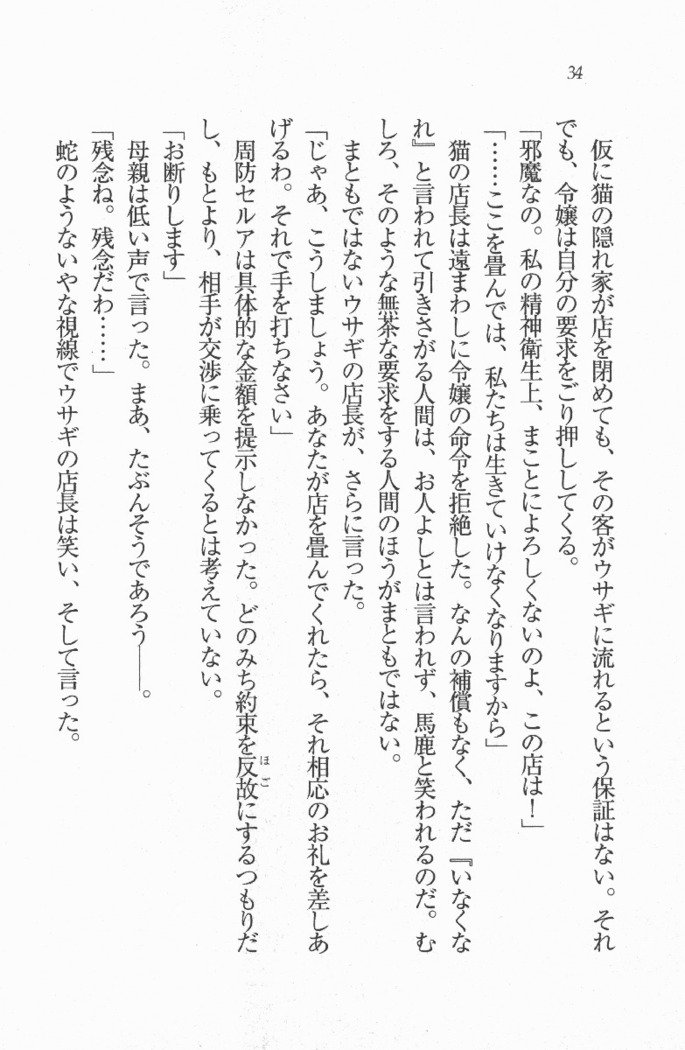 34
仮に猫の隠れ家が店を閉めても、その客がウサギに流れるという保証はない。それ
でも、令嬢は自分の要求をごり押ししてくる。
「邪魔なの。私の精神衛生上、まことによろしくないのよ、この店は！」
「……ここを畳んでは、私たちは生きていけなくなりますから」
猫の店長は遠まわしに令嬢の命令を拒絶した。なんの補償もなく、ただ『いなくな
れ』と言われて引きさがる人間は、お人よしとは言われず、馬鹿と笑われるのだ。む
しろ、そのような無茶な要求をする人間のほうがまともではない。
まともではないウサギの店長が、さらに言った。
「じゃあ、こうしましょう。あなたが店を畳んでくれたら、それ相応のお礼を差しあ
げるわ。それで手を打ちなさい」
周防セルアは具体的な金額を提示しなかった。どのみち約束を反故にするつもりだ
ほご
し、もとより、相手が交渉に乗ってくるとは考えていない。
「お断りします」
母親は低い声で言った。まあ、たぶんそうであろう――。
「残念ね。残念だわ……」
蛇のようないやな視線でウサギの店長は笑い、そして言った。